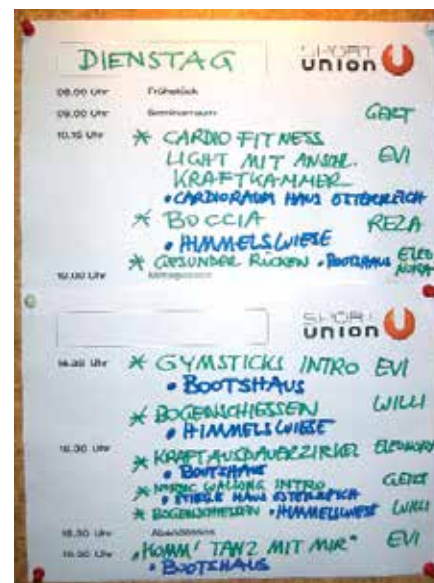 DIENSTAG
SPORT
UNION
08.00 Uhr Frühstück
09.00 Uhr Seminarraum GERT
10.15 Uhr * CARDIO FITNESS
LIGHT MIT ANSCHL. EVI
KRAFTKAMMER
• CARDIORAUM HAUS ÖSTERREICH
* BOCCIA REZA
• HIMMELSWIESE
* GESUNDER RÜCKEN • BOOTSHAUS
Uhr Mittagessen
SPORT
UNION
Uhr * GYMSTICKS INTRO EVI
• BOOTSHAUS
* BOGENSCHIESSEN WILLI
• HIMMELSWIESE
16.30 Uhr * KRAFTAUSDAUERZIRKEL
• BOOTSHAUS
* NORDIC WALKING INTRO GERT
• STIEGE HAUS ÖSTERREICH
* BOGENSCHIESSEN • HIMMELSWIESE WILLI
18.30 Uhr Abendessen
Uhr „KOMM' TANZ MIT MIR" EVI
• BOOTSHAUS